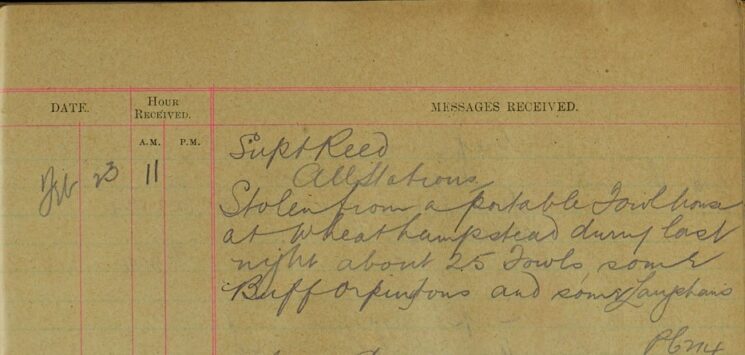 DATE. HOUR RECEIVED. MESSAGES RECEIVED.
A.M. P.M.
Feb 23 11 Supt Reed
All Stations
Stolen from a portable Fowl house
at Wheathampstead during last
night about 25 Fowls, some
Buff Orpingtons and some Langshans